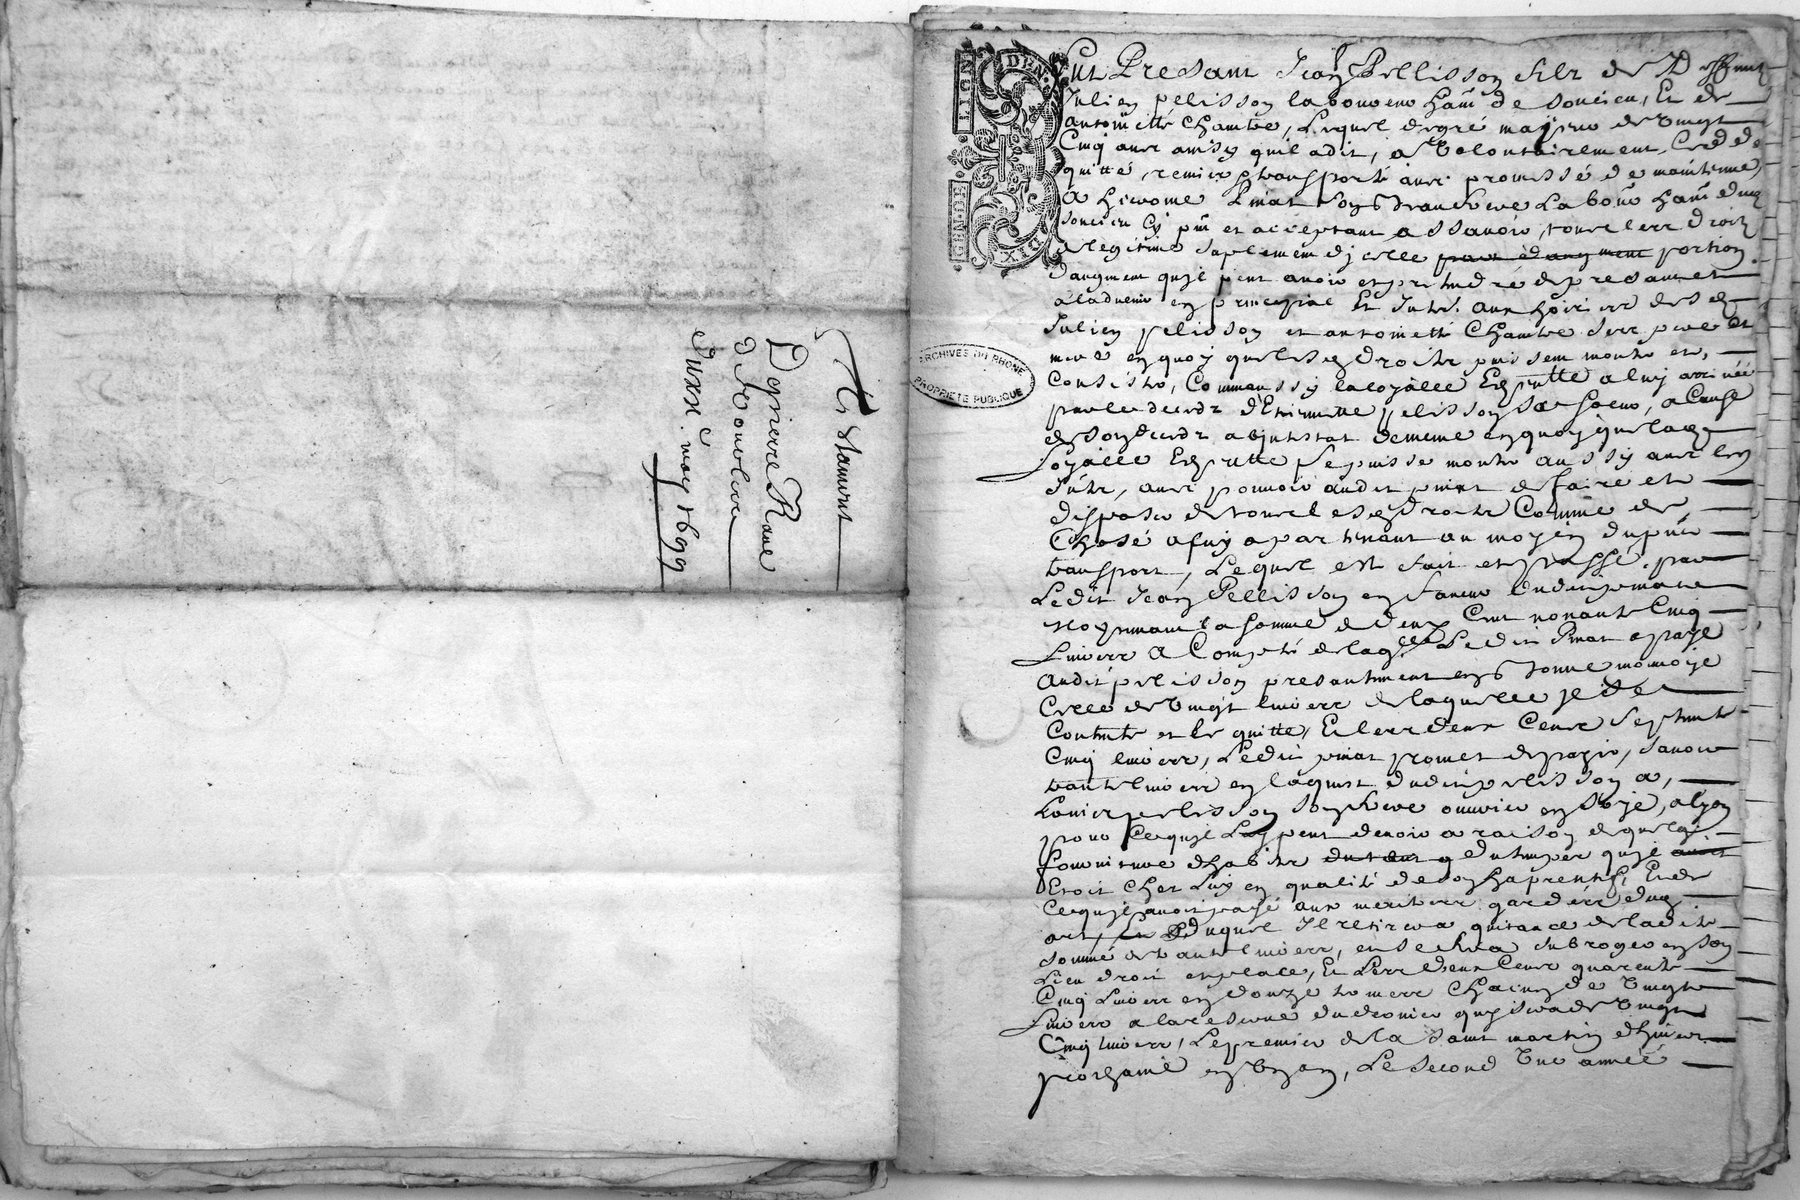 Testament
De pierre Rave
de Rouolure
Du xxx. may 1699
GEN. DE LION
DEN. DIX
ARCHIVES DU RHONE
PROPRIETE PUBLIQUE
Fut Present Jean Pellisson filz de Deffunt
Julien pelisson laboureur hañt de soucieu, Et de
antoinette Chambe, Lequel degré majeur de Vingt
Cinq ans ainsy quil a dit, a Volontairement Ceddé
quitté, remis et transporté avec promesse de maintenue,
A hierome Pinat son beaufrere Labour hañt dud
soucieu Cy pñt et acceptant assavoir, tous les droits
de legitime suplement dicelle portion
daugment quil peut avoir et pretendre de present et
a ladvenir en principal Et Intr. aux hoiries desd
Julien pelisson et antoinette Chambe ses pere et
mere en quoy que lesd droits puissent monter et,
Consister, Comme aussy la loyalle Escutte a luy arrivée
par le deceds d'Etiennette pelisson sa soeur, a Cause
de son deceds abjntestat de meme en quoy que lad
loyalle Escutte se puisse monter aussy avec les
Intr, avec pouvoir audit pinat de faire et
disposer de tous lesd droits Comme de
Chose a luy apartenant au moyen du pñt
transport, Lequel est fait et passé par
Ledit Jean Pellisson en faveur dudit pinat
moyennant la somme de deux Cent nonante Cinq
Livres A Compte de laqlle Ledit Pinat a payé
audit pelisson presentement en bonne monoye
Celle de Vingt livres de laquelle Il se
Contente et le quitte, Et les deux Cens septante
Cinq livres, Ledit pinat promet de payer, savoir
trante livres en lacquit dudit pelisson a,
pelisson son frere ouvrier en soye, a lyon
pour Ce quil Luy peut devoir a raison de quelq
fourniture dhabits du temps quil
Etoit Chez Luy en qualité de son aprentif, Et de
Ce quil avoit payé aux mestres gardes dud
art, Duquel Il retirera quitance de ladite
somme de trante livres, et se fera subroger en son
Lieu droit et place, Et Les deux Cens quarente
Cinq Livres en douze termes Chacun de Vingt
Livres a la reserve du dernier quy sera de Vingt
Cinq livres, Le premier de la saint martin dhiver
prochaine en Un an, Le second Une année